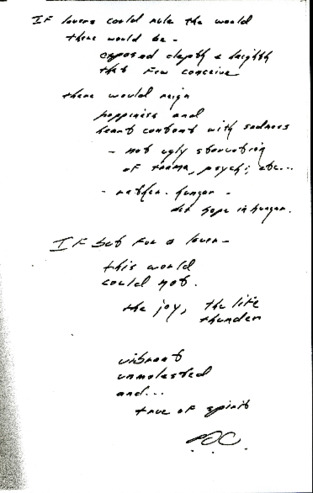 If lovers could rule the world
there would be -
exposed depth & heighth
that few conceive
there would reign
happiness and
heart content with sadness
- not ugly starvation
of soma, psych, etc...
- rather hunger -
hope in hunger.
If but for a lover -
this world
could not.
the joy, the life
thunder
vibrant
unmolested
and...
true of spirit